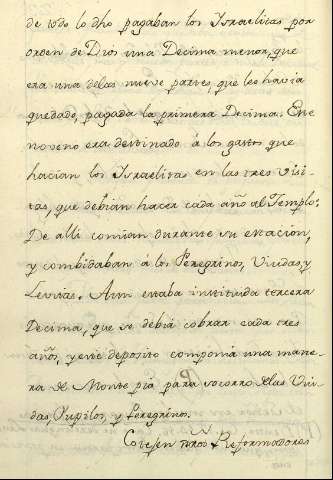 de todo lo dho pagaban los Israelitas por
orden de Dios una Decima menor, que
era una delas nueve partes, que les havia
quedado, pagada la primera Decima. Este
noveno era destinado á los gastos que
hacian los Israelitas en las tres Visi-
tas, que debian hacer cada año al Templo:
De alli comian durante su estacion,
y combidaban á los Peregrinos, Viudas, y
Levitas. Aun estaba instituida tercera
Decima, que se debiá cobrar cada tres
años, y este deposito componia una mane-
ra de Monte pia para socorro delas Viu-
das, Pupilos, y Peregrinos.
Cotesen nros Reformadores